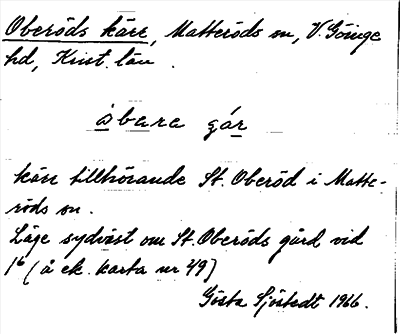 Oberöds kärr, Matteröds sn, V. Göinge
hd, Krist. län.
åbara gár
kärr tillhörande St. Oberöd i Matte-
röds sn.
Läge sydväst om St. Oberöds gård vid
1⁶ (å ek. karta nr 49)
Gösta Sjöstedt 1966.